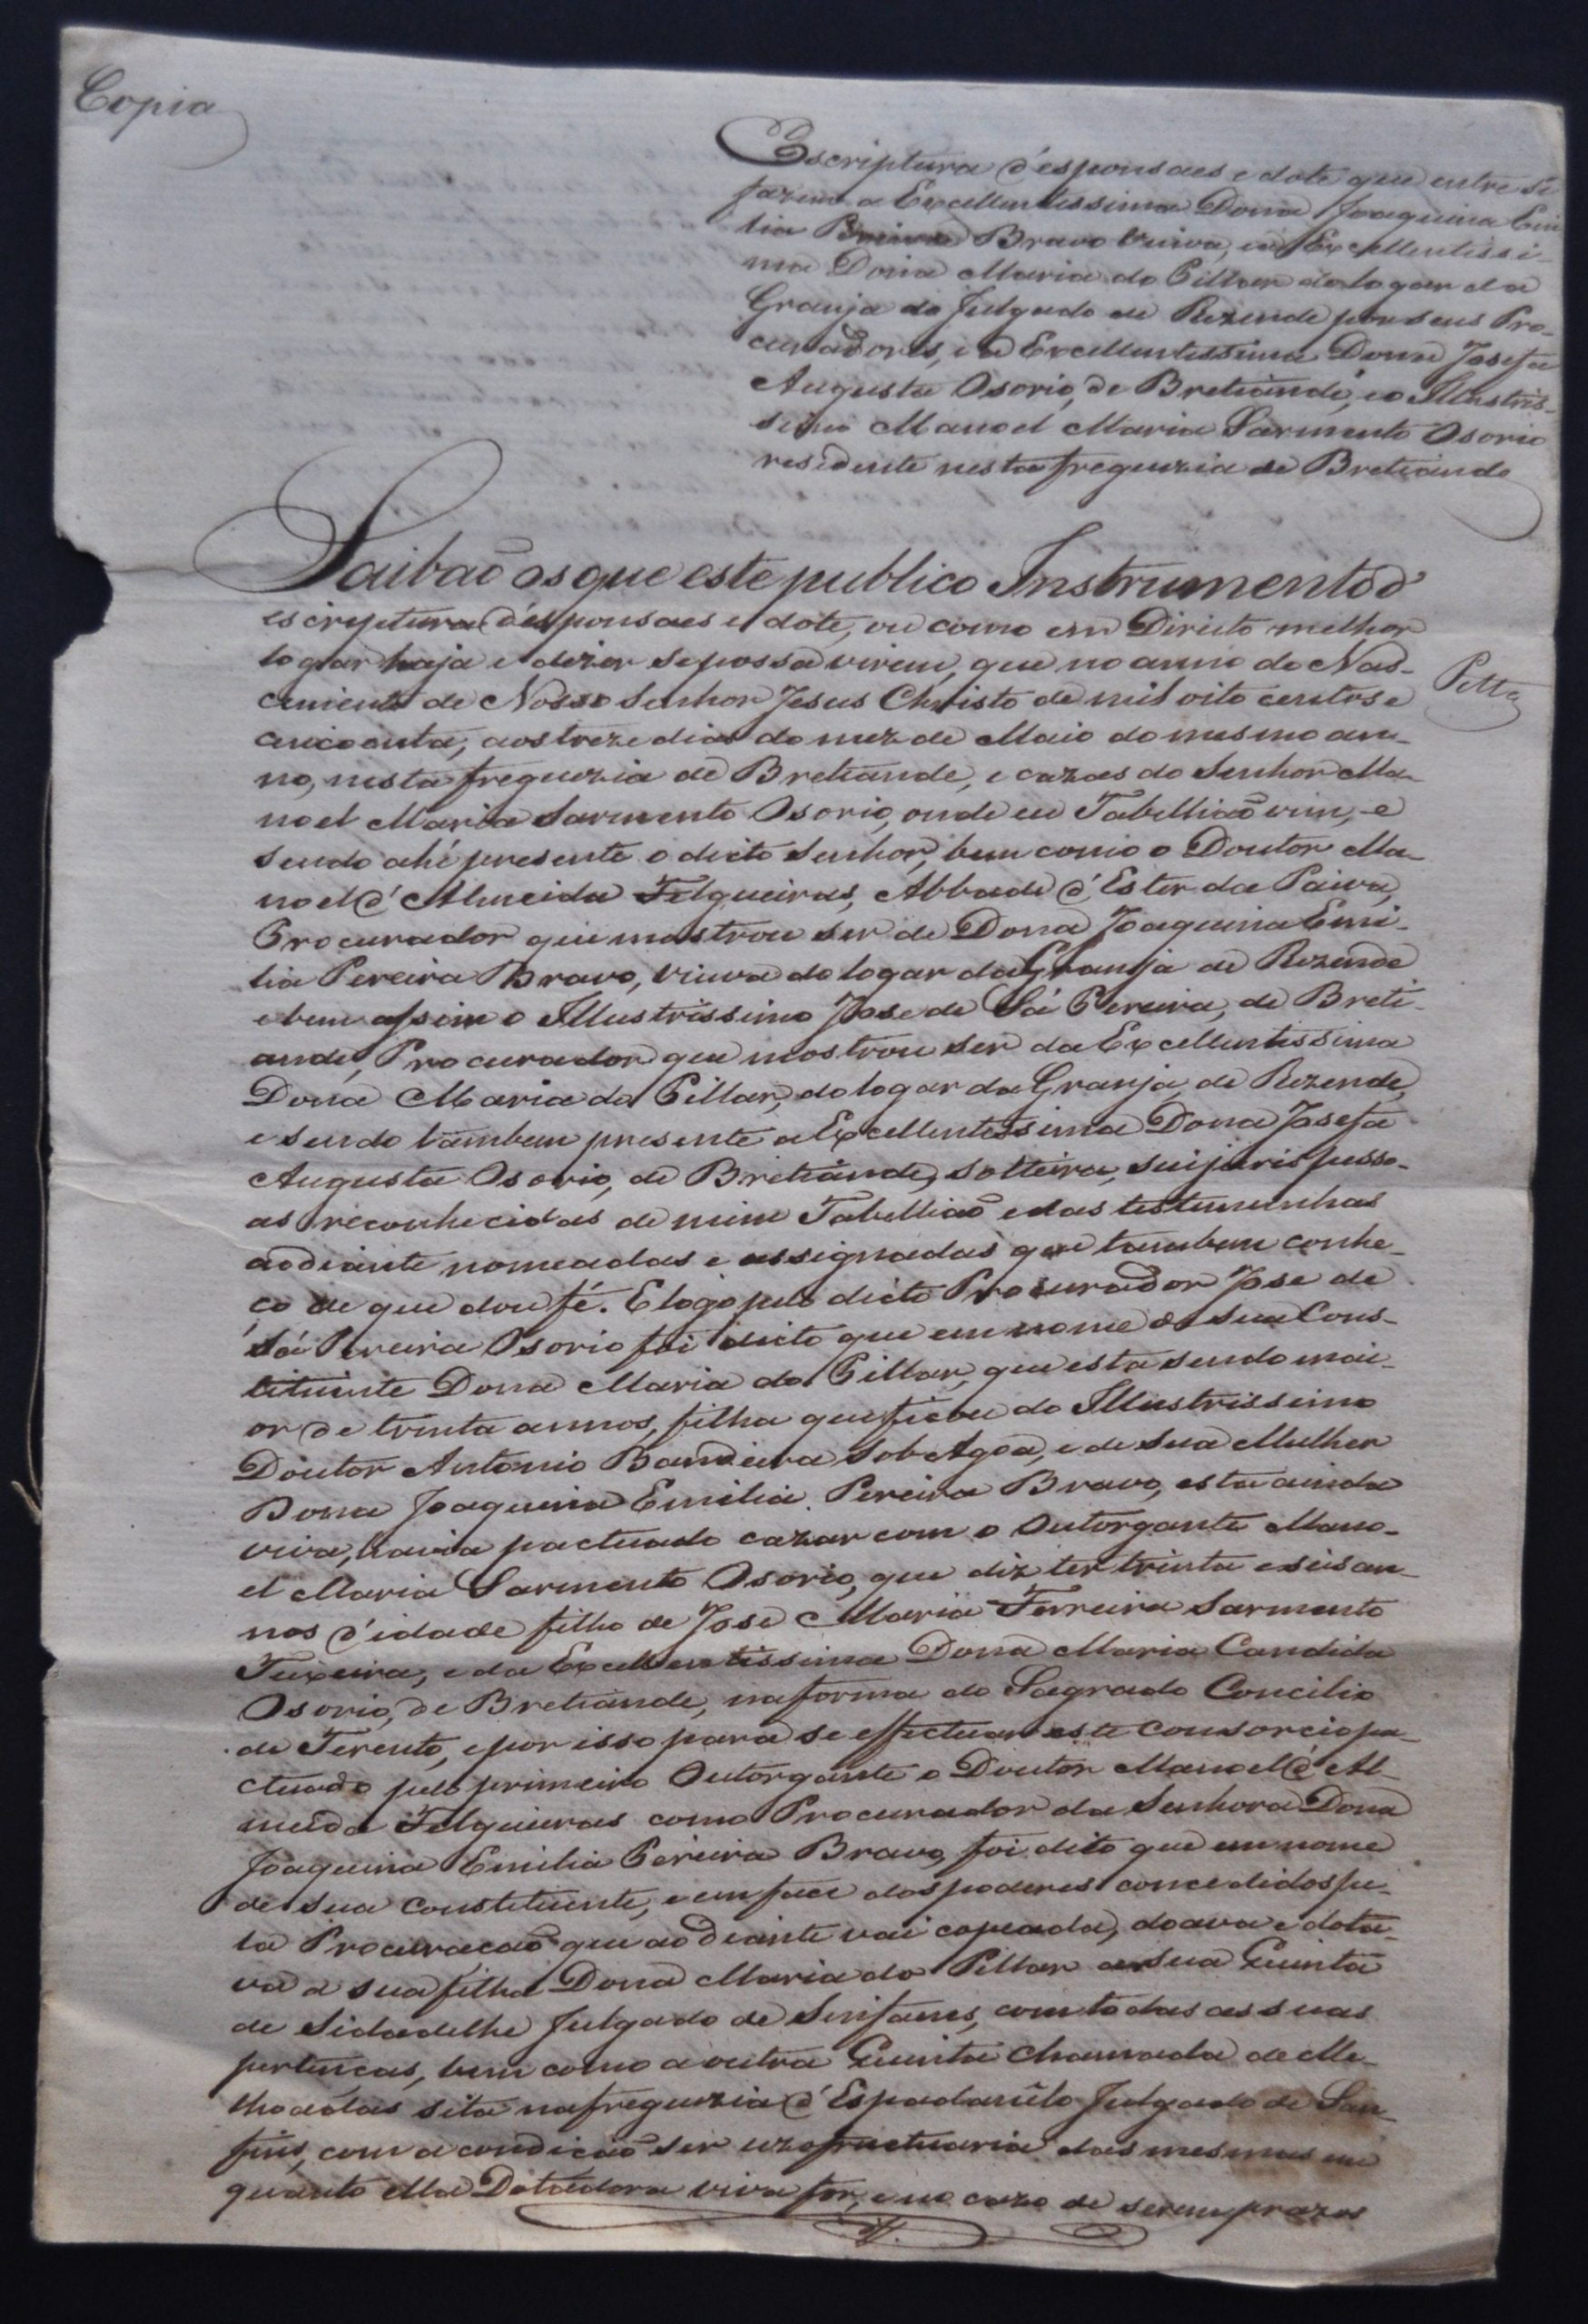 Copia
Escriptura d'esponsaes e dote que entre si
fazem a Excellentissima Dona Joaquina Emi
lia Bravo Viuva, e a Excellentissi-
ma Dona Maria do Pillar do logar da
Granja do Julgado de Rezende por seus Pro-
curadores, e a Excellentissima Dona Josefa
Augusta Osorio, de Bretiande, e o Illustris-
simo Manoel Maria Sarmento Osorio
residente nesta freguezia de Bretiande
Saibaõ os que este publico Instrumento d'
escriptura d'esponsaes e dote, ou como em Direito melhor
logar haja e dizer se possa virem, que no anno do Nas-
cimento de Nosso Senhor Jesus Christo de mil oito centos e
cincoenta, aos treze dias do mez de Maio do mesmo an-
no, nesta freguezia de Bretiande, e cazas do Senhor Ma-
noel Maria Sarmento Osorio, onde eu Tabelliaõ vim, e
sendo ahi presente o dicto Senhor, bem como o Doutor Ma-
noel d'Almeida Felgueiras, Abbade d'Ester da Paiva,
Procurador que mostrou ser de Dona Joaquina Emi-
lia Pereira Bravo, viuva do logar da Granja de Rezende
e bem assim o Illustrissimo Jose de Sá Pereira, de Breti-
ande, Procurador que mostrou ser da Excellentissima
Dona Maria do Pillar, do logar da Granja, de Rezende,
e sendo tambem presente a Excellentissima Dona Josefa
Augusta Osorio, de Bretiande, solteira, sui juris pesso-
as reconhecidas de mim Tabelliaõ e das testemunhas
ao diante nomeadas e assignadas que tambem conhe-
ço de que dou fé. E logo pelo dicto Procurador Jose de
Sá Pereira Osorio foi dicto que em nome de sua Cons-
tituinte Dona Maria do Pillar, que esta sendo mai-
or de trinta annos, filha que ficou do Illustrissimo
Doutor Antonio Bandeira Sob Agoa, e de sua Mulher
Dona Joaquina Emilia Pereira Bravo, esta ainda
viva, havia pactuado cazar com o Outorgante Mano-
el Maria Sarmento Osorio, que diz ter trinta e seis an-
nos d'idade filho de Jose Maria Ferreira Sarmento
Teixeira, e da Excellentissima Dona Maria Candida
Osorio, de Bretiande, na forma do Sagrado Concilio
de Terento, e por isso para se effectuar este consorcio pa-
ctuado pelo primeiro Outorgante o Doutor Manoel d'Al-
meida Felgueiras como Procurador da Senhora Dona
Joaquina Emilia Pereira Bravo, foi dito que em nome
de sua Constituinte, e em face dos poderes concedidos pe-
la Procuracaõ que ao diante vai copeada, doava e dota-
va a sua filha Dona Maria do Pillar a sua Quinta
de Sidadelhe Julgado de Sinfaens, com todas as suas
pertenças, bem como a outra Quinta chamada de Me-
lhoadas sita na freguezia d'Espadanêlo Julgado de San-
fins, com a condiçaõ ser uzofructuaria das mesmas em
quanto ella Dotadora viva for, e no cazo de serem prazos